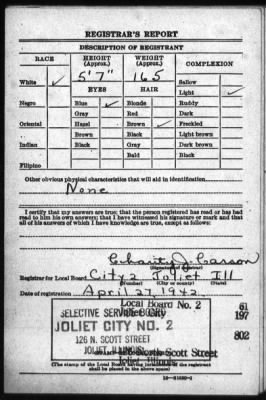 REGISTRAR'S REPORT
DESCRIPTION OF REGISTRANT
RACE HEIGHT (Approx.) WEIGHT (Approx.) COMPLEXION
5' 7" 165
White ✓ Sallow
EYES HAIR Light ✓
Negro Blue ✓ Blonde Ruddy
Gray Red Dark
Oriental Hazel Brown ✓ Freckled
Brown Black Light brown
Indian Black Gray Dark brown
Bald Black
Filipino
Other obvious physical characteristics that will aid in identification
None
I certify that my answers are true; that the person registered has read or has had
read to him his own answers; that I have witnessed his signature or mark and that
all of his answers of which I have knowledge are true, except as follows:
Charity J. Carson
(Signature of registrar)
Registrar for Local Board City 2 Joliet Ill
(Number) (City or county) (State)
Date of registration April 27, 1942
Local Board No. 2 61
SELECTIVE SERVICE BOARD 197
JOLIET CITY NO. 2 802
126 N. SCOTT STREET
JOLIET, ILLINOIS
North Scott Street
Joliet, Illinois
(The stamp of the Local Board having jurisdiction of the registrant
shall be placed in the above space)